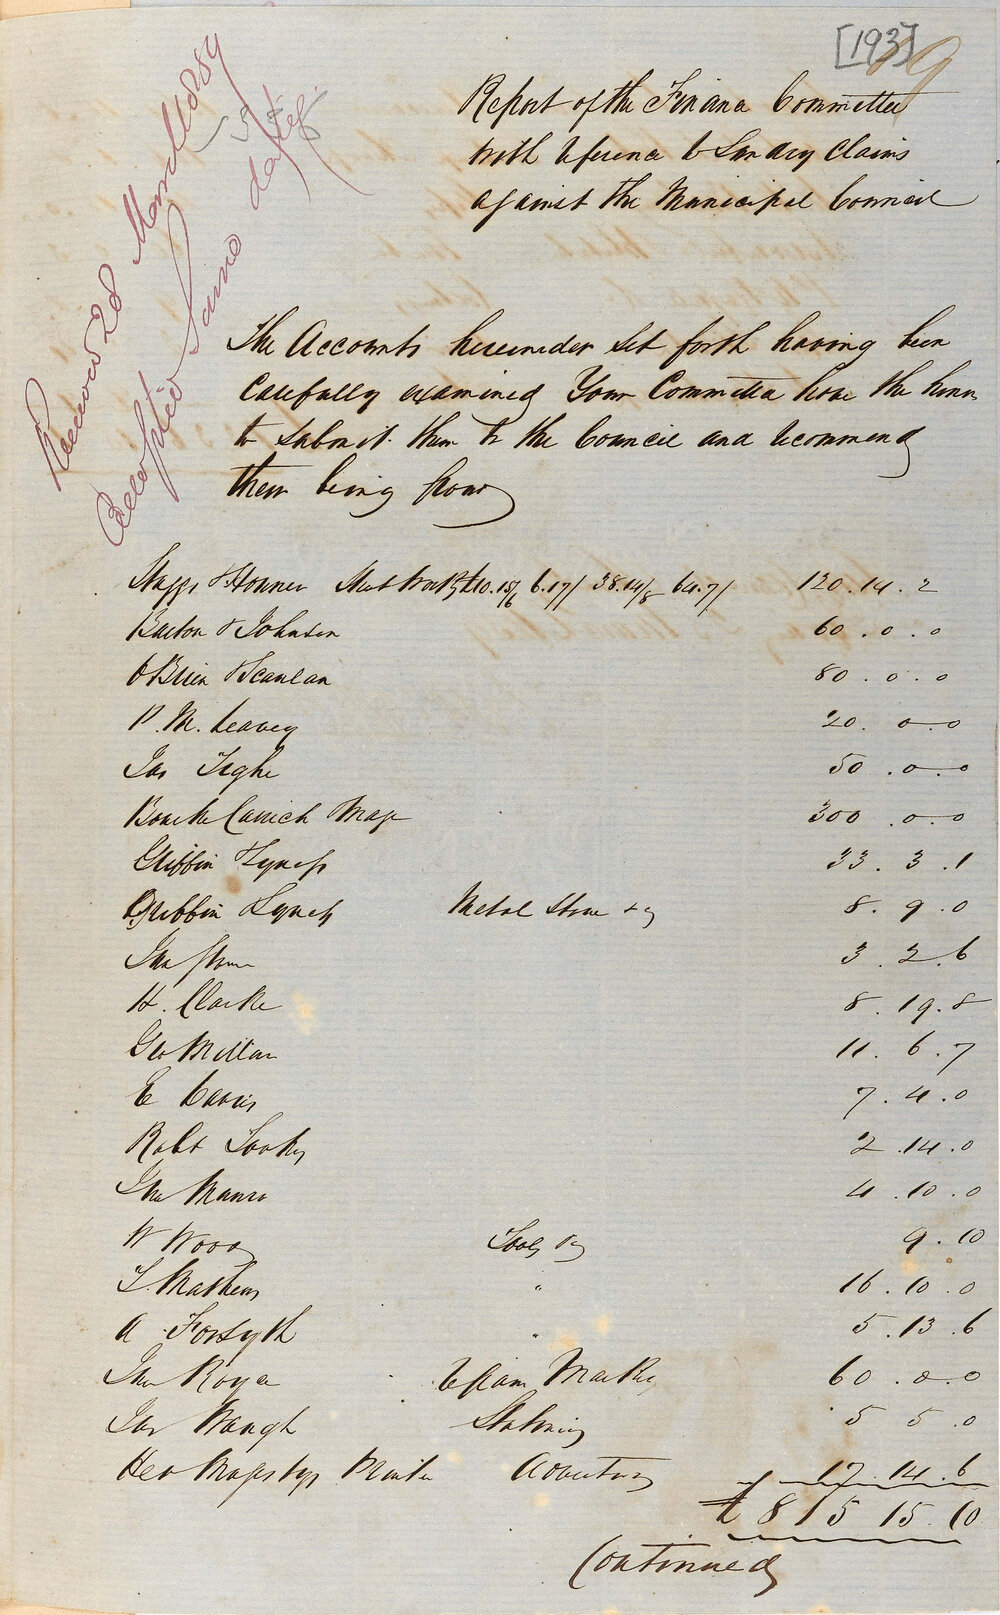 [193]
9
Report of the Finance Committee
with reference to Sundry Claims
against the Municipal Council
Received 28 March 1859
Adopted Same date
The Accounts hereunder Set forth having been
Carefully examined Your Committee have the honor
to submit them to the Council and recommend
them being paid
Staggs & Horner Street Works £10.15/6 6.17/ 38.14/8 64.7/ 120.14.2
Barton & Johnson 60.0.0
O'Brien & Scanlan 80.0.0
P. M. Leavey 20.0.0
Jas Tighe 50.0.0
Bourke Carrick 300.0.0
Griffin & Lynch 33.3.1
Gribbin & Lynch Metal Stone &c 8.9.0
Jno 3.2.6
H. Clarke 8.19.8
Geo Millar 11.6.7
E Davis 7.4.0
Robt 2.14.0
Jno Munro 4.10.0
W Wood Tools &c 9.10
T. Mathews " 16.10.0
A Forsyth " 5.13.6
Jno Royce 60.0.0
Jas Waugh Stationery 5 5.0
Her Majestys Printer Advertising 17.14.6
£815 15.10
Continued